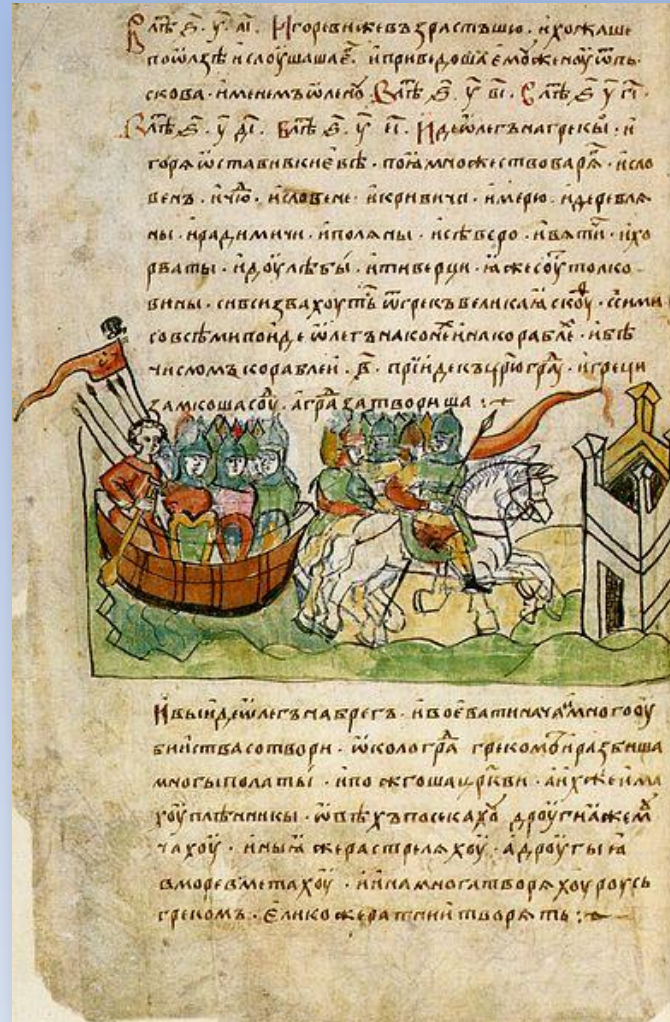 В лѣто ҂ѕ҃ у҃ а҃і. Игореви же възрастъшю. и хожаше
по Ѡлзѣ и слоушаша е҃. и приведоша ему женоу ѿ Пь
скова. именемъ Ѡлену. В лѣⷮ ҂ѕ҃ у҃ в҃і. В лѣⷮ ҂ѕ҃ у҃ г҃і
В лѣⷮ ҂ѕ҃ у҃ д҃і. В лѣⷮ ҂ѕ҃ у҃ е҃і. Иде Ѡлегъ на грекы. и
горѧ ѡстави в Киевѣ. поѧ множество варѧ. и сло
венъ. и чю. и словене. и кривичи. и мерю. и деревлѧ
ны. и радимичи. и полѧны. и сѣверо. и вѧти. и хо
рваты. и доулѣбы. и тиверци. ꙗже соуть толко
вины. си вси звахоуть ѿ грекъ великаꙗ скоу. с сими
со всѣми поиде Ѡлегъ на коне и на кораблѣ. и бѣ
числомъ кораблеи. в҃. прїиде къ ц҃рюграⷣ. и греци
замкоша соуⷣ. а граⷣ затвориша
И выиде Ѡлегъ на брегъ. и воевати нача. и много оу
бииства сотвори. ѡколо граⷣ грекомъ и разбиша
многы полаты. и пожгоша црк҃ви. а ихже има
хоу плѣнникы. ѡвѣхъ посекахоу дроугиꙗ же мⷱ
чахоу. иныꙗ же растрелѧхоу. а дроугыꙗ
в море вметахоу. и ина многа творѧхоу роусь
грекомъ. елико же ратнии творѧть